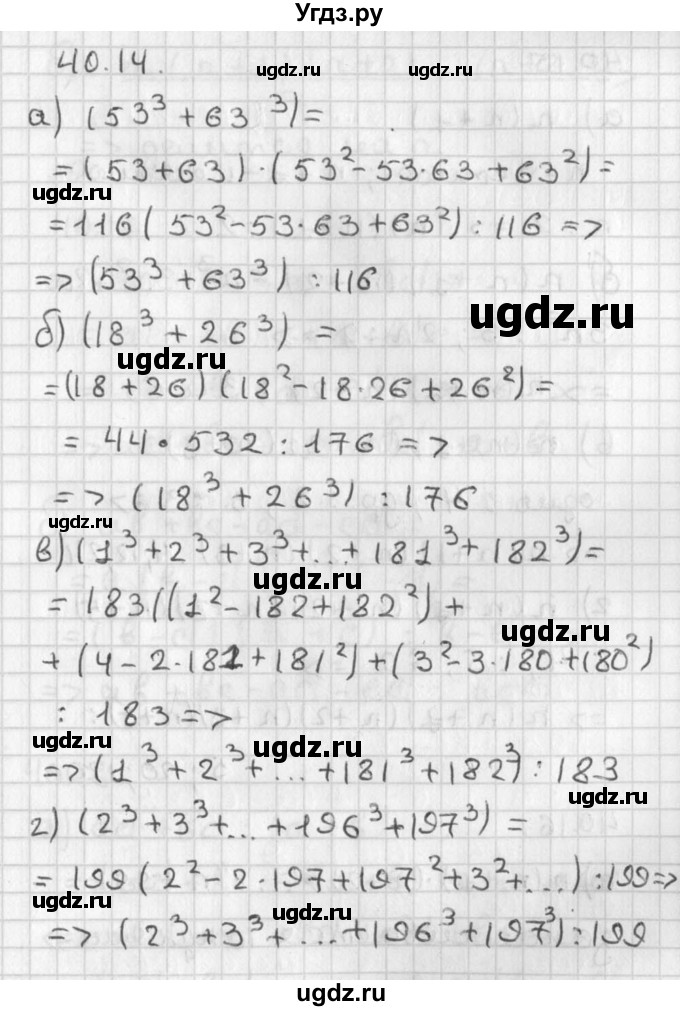 Угдз.ру
40.14.
ugdz.ru ugdz.ru
а) (53³ + 63³) =
= (53+63) · (53² - 53·63 + 63²) =
ugdz.ru
= 116 ( 53² - 53·63 + 63²) ⋮ 116 =>
=> (53³ + 63³) ⋮ 116
ugdz.ru
б) (18³ + 26³) =
ugdz.ru
= (18 + 26) (18² - 18·26 + 26²) =
= 44 · 532 ⋮ 176 =>
=> (18³ + 26³) ⋮ 176
ugdz.ru
в) (1³ + 2³ + 3³ + ... + 181³ + 182³) =
ugdz.ru
= 183 ((1² - 182 + 182²) +
ugdz.ru
+ (4 - 2·181 + 181²) + (3² - 3·180 + 180²)
⋮ 183 =>
ugdz.ru ugdz.ru
=> (1³ + 2³ + ... + 181³ + 182³) ⋮ 183
ugdz.ru
г) (2³ + 3³ + ... + 196³ + 197³) =
= 199 ( 2² - 2·197 + 197² + 3² + ...) ⋮ 199 =>
ugdz.ru ugdz.ru
=> (2³ + 3³ + ... + 196³ + 197³) ⋮ 199
ugdz.ru
ugdz.ru